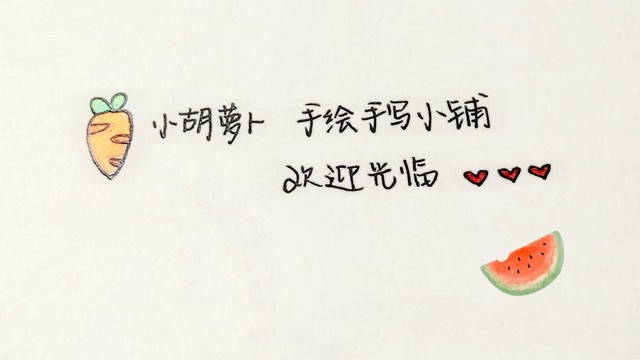 小胡萝卜 手绘手写小铺
欢迎光临